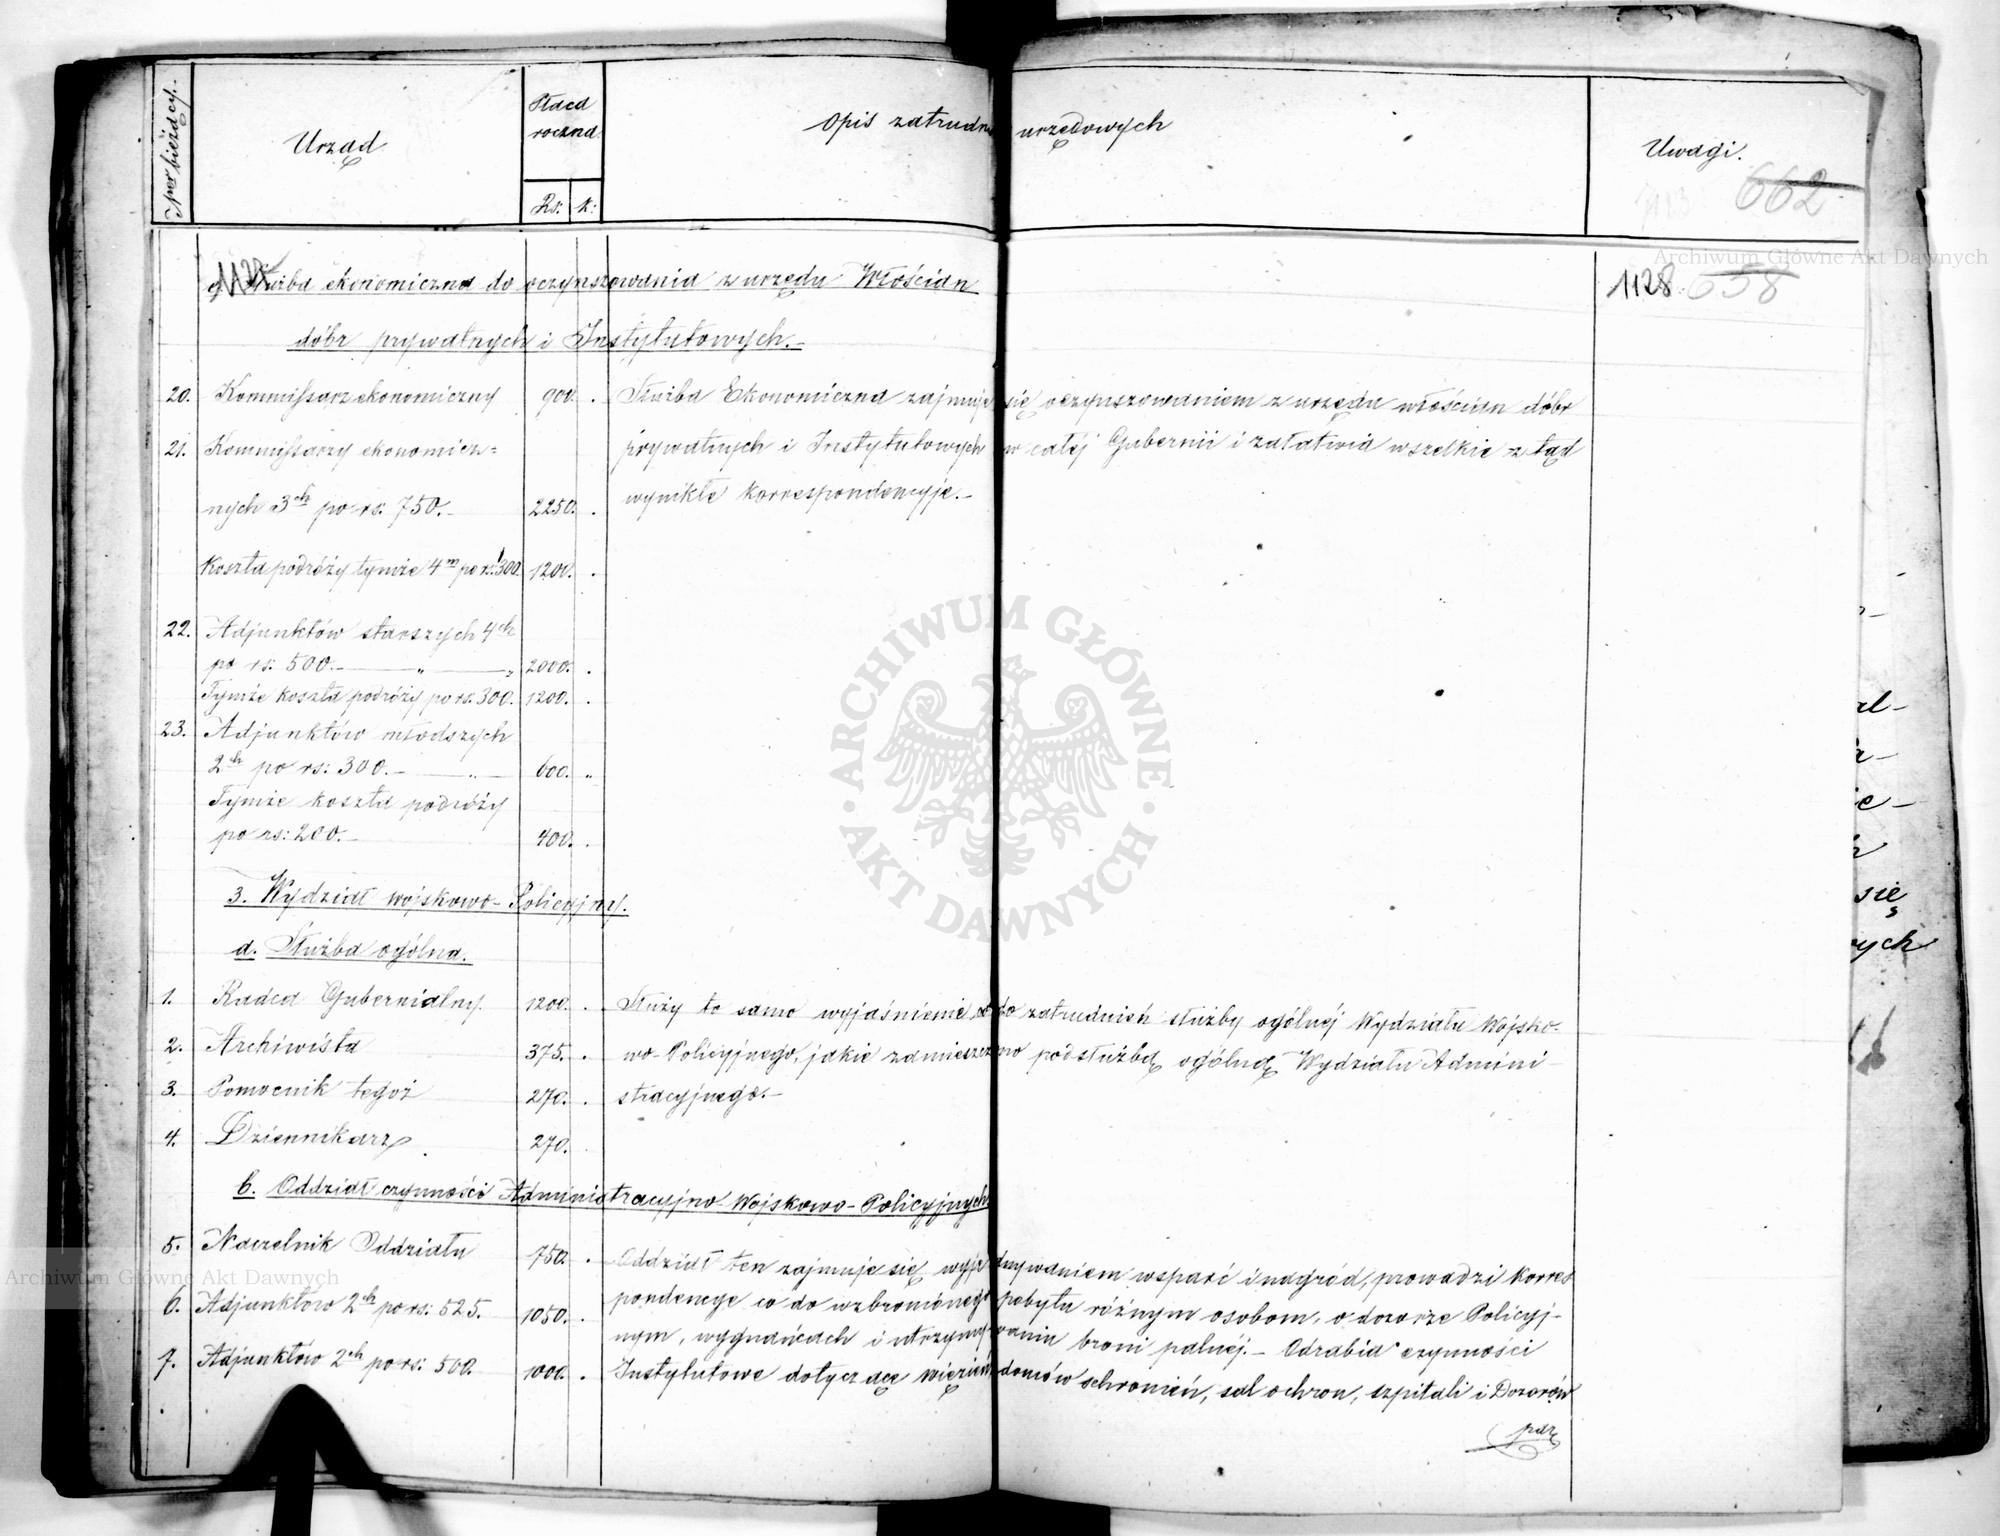 Ner bieżący.
Urząd
Płaca
roczna
Rs: k:
Opis zatrudn urzędowych
Uwagi.
662
1128 658
Służba ekonomiczna do oczynszowania z urzędu Włościan
dóbr prywatnych i Instytutowych.-
20. Kommissarz ekonomiczny 900. .
21. Kommissarzy ekonomicz=
nych 3ch po rs: 750.- 2250. .
Koszta podróży tymże 4m po rs: 300. 1200. .
22. Adjunktów starszych 4ch
po rs: 500.- " " 2000. .
Tymże koszta podróży po rs. 300. 1200. .
23. Adjunktów młodszych
2ch po rs: 300.- " 600. "
Tymże koszta podróży
po rs: 200.- 400. .
Służba Ekonomiczna zajmuje się oczynszowaniem z urzędu włościan dóbr
prywatnych i Instytutowych w całéj Gubernii i załatwia wszelkie ztąd
wynikłe korrespondencyje.-
3. Wydział wojskowo-Policyjny.
a. Służba ogólna.
1. Radca Gubernialny. 1200. .
2. Archiwista 375. .
3. Pomocnik tegoż 270. .
4. Dziennikarz 270. .
Służy to samo wyjaśnienie co do zatrudnień służby ogólnéj Wydziału Wojsko-
wo-Policyjnego, jakie zamieszczono pod służbą ogólną Wydziału Admini-
stracyjnego.-
b. Oddział czynności Administracyjno-Wojskowo-Policyjnych
5. Naczelnik Oddziału 750. .
6. Adjunktów 2ch po rs: 525. 1050. .
7. Adjunktów 2ch po rs: 500. 1000. .
Oddział ten zajmuje się wyjednywaniem wsparć i nagród, prowadzi korres
pondencye co do wzbronionego pobytu różnym osobom, o dozorze Policyj-
nym, wygnańcach i utrzymywaniu broni palnéj.- Odrabia czynności
Instytutowe dotyczące więzień, domów schronień, sal ochron, szpitali i Dozorów
Archiwum Główne Akt Dawnych
ARCHIWUM GŁÓWNE · AKT DAWNYCH ·
Archiwum Główne Akt Dawnych
się